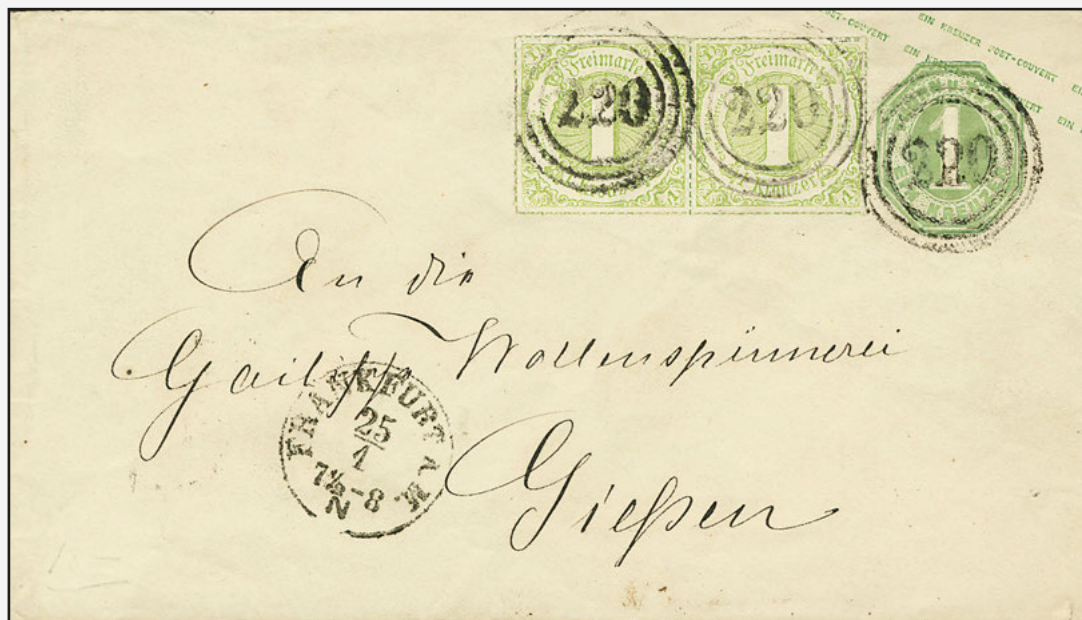 EIN KREUZER POST-COUVERT EIN
POST-COUVERT EIN
Freimarke 1 Kreuzer 220
Freimarke 1 Kreuzer 220
1 EIN KREUZER 220
An die
Gail'sche Wollenspinnerei
Gießen
FRANKFURT A.M.
25
1
7½-8
N